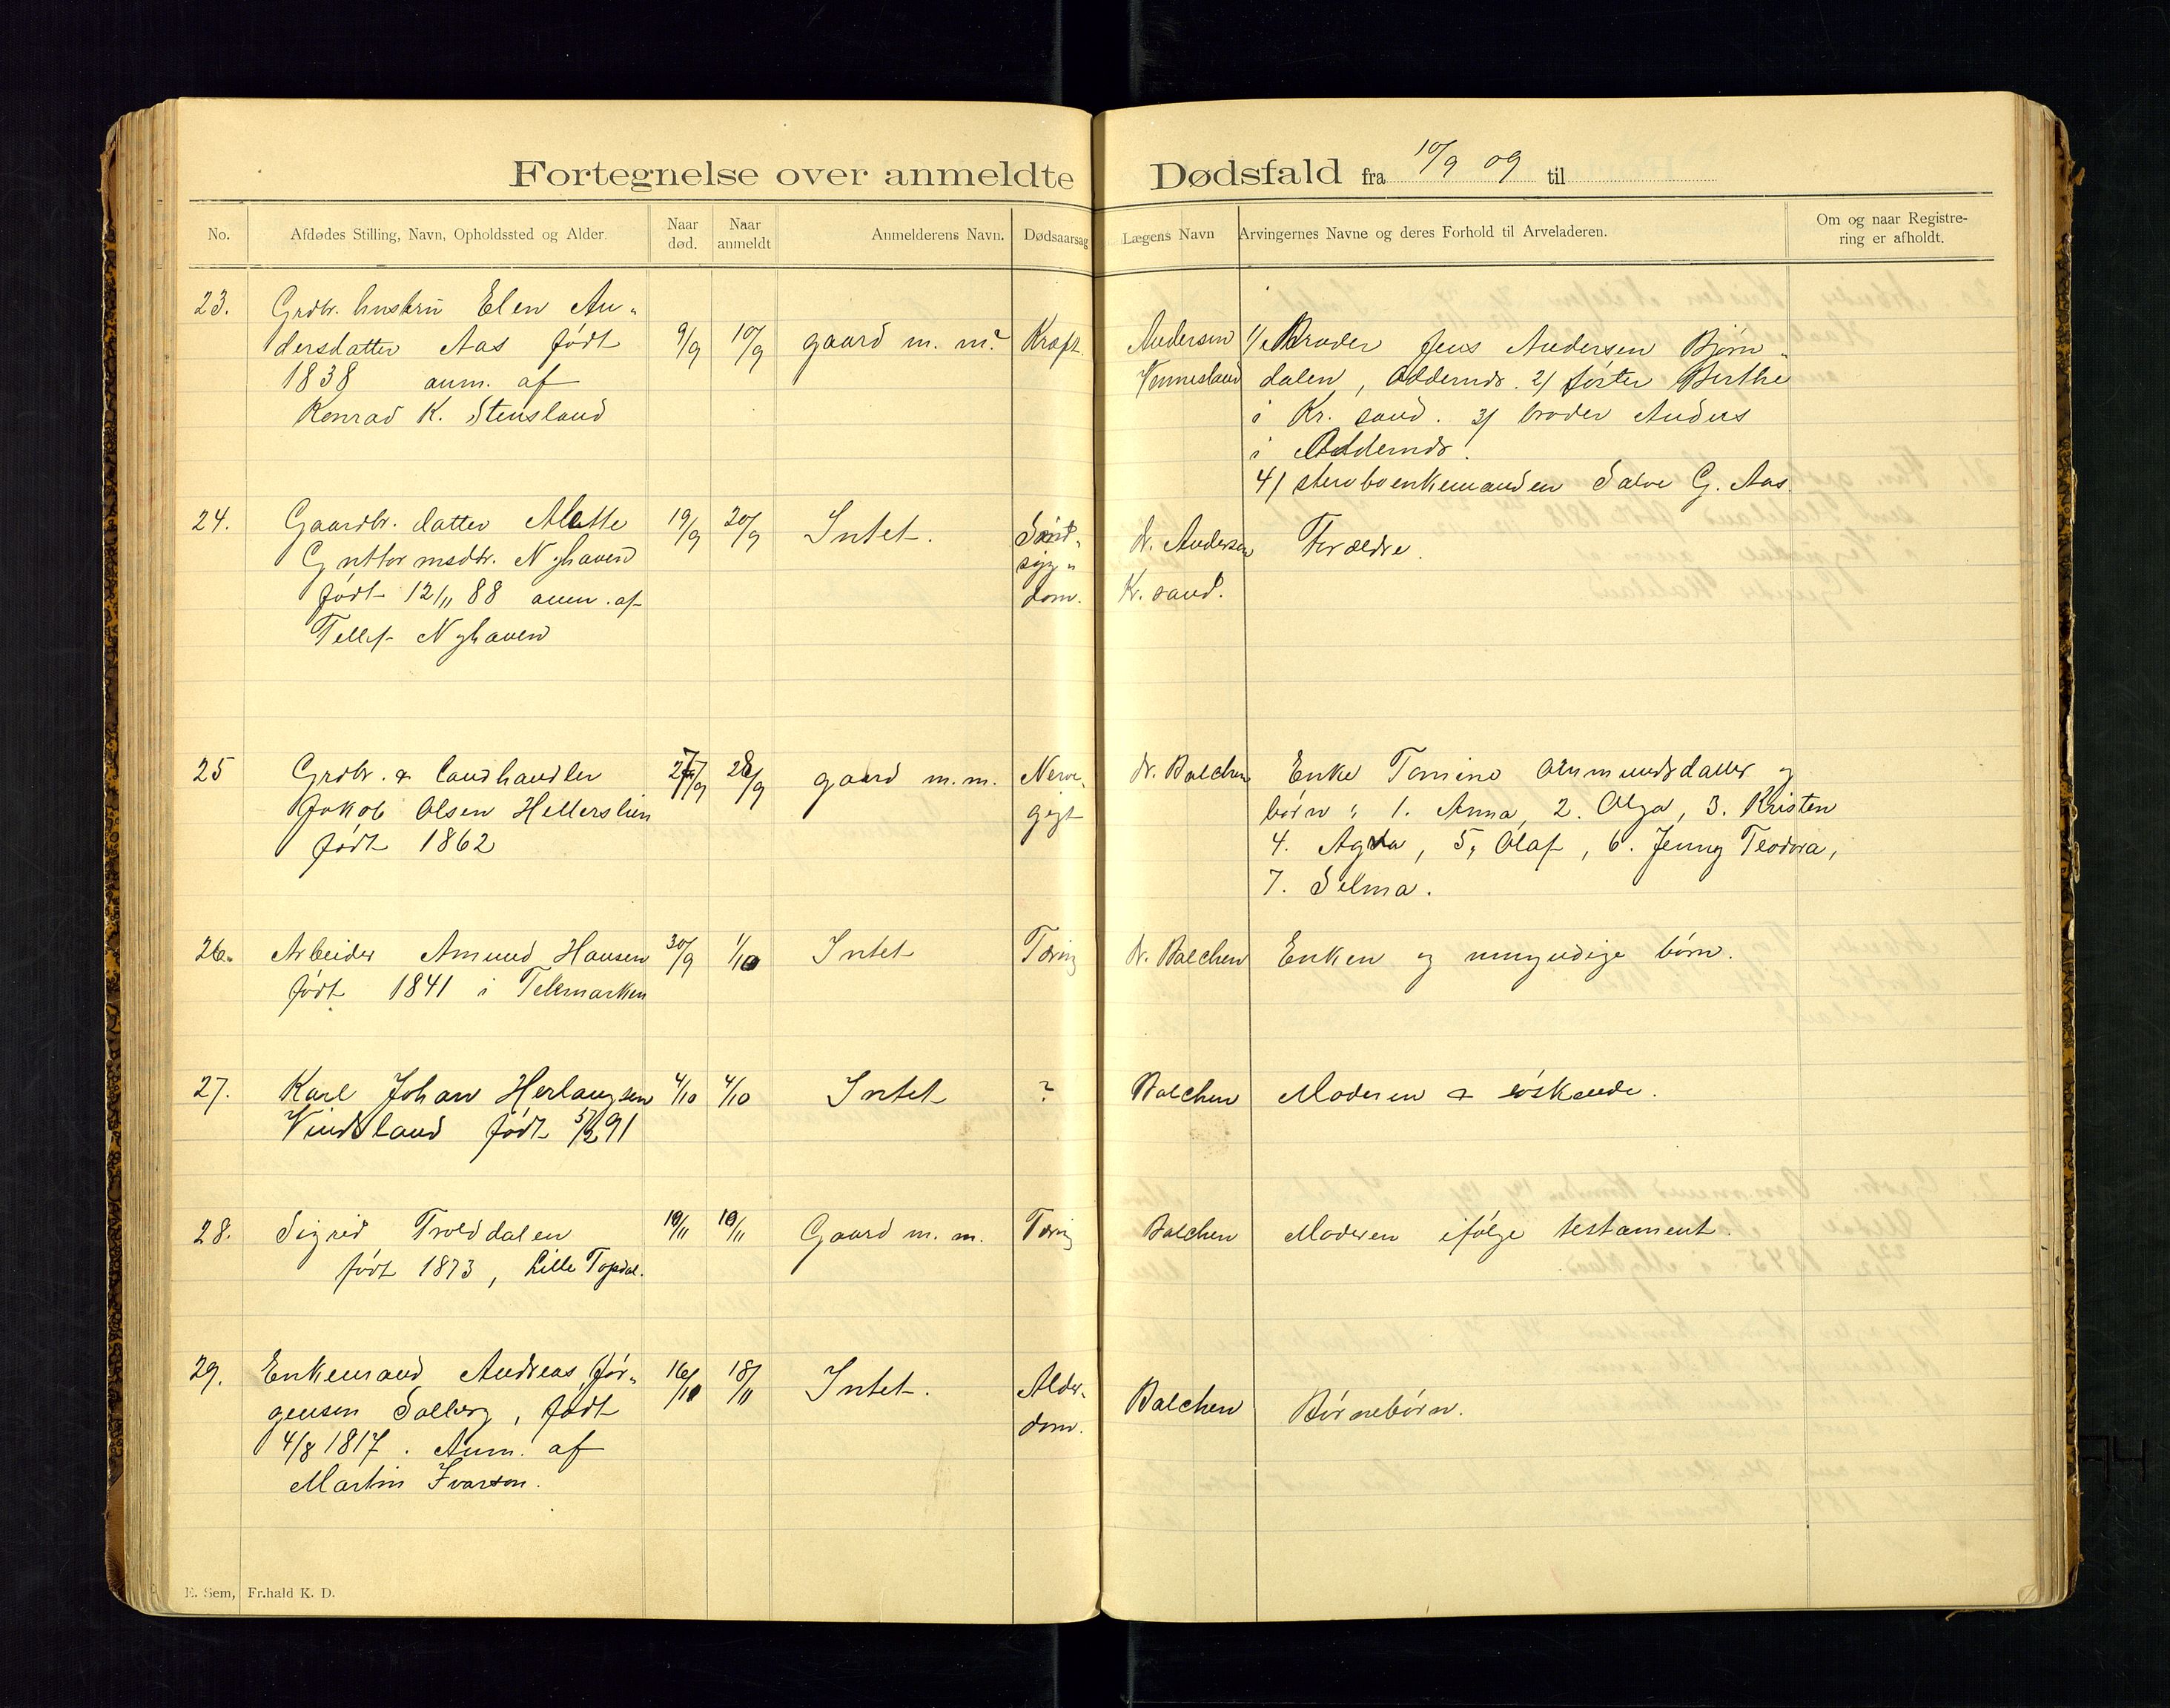 Fortegnelse over anmeldte Dødsfald fra 10/9 09 til
No. Afdødes Stilling, Navn, Opholdssted og Alder. Naar død. Naar anmeldt Anmelderens Navn. Dødsaarsag Lægens Navn Arvingernes Navne og deres Forhold til Arveladeren. Om og naar Registrering er afholdt.
23. Grdbr. hustru Elen An-
dersdatter Aas født 9/9 10/9 gaard m. m. Kræft. Andersen 1/ Broder Jens Andersen Bjørn-
1838 anm. af Vennesland dalen, Oddernds. 2/ søster Berthe
Konrad K. Stensland i Kr. sand. 3/ broder Anders
i Oddernds.
4/ stervboenkemanden Salve G. Aas.
24. Gaardbr. datter Alette 19/9 20/9 Intet. Sind- dr. Andersen Forældre.
Guttormsdtr. Nyhaven syg-
født 12/11 88 anm. af dom. Kr. sand.
Tellef Nyhaven
25 Grdbr. & landhandler 27/9 28/9 gaard m. m. Nerve- dr. Balchen Enke Tomine Ommundsdatter og
Jakob Olsen Hellerslien gigt børn: 1. Anna, 2. Olga, 3. Kristen
født 1862 4. Agda, 5, Olaf, 6. Jenny Teodora,
7. Selma.
26. Arbeider Amund Hansen 30/9 1/10 Intet Tæring dr. Balchen Enken og umyndige børn.
født 1841 i Telemarken
27. Karl Johan Herlaugsen 4/10 4/10 Intet ? Balchen Moderen & søskende.
Vindsland født 5/2 91
28. Sigrid Trolddalen 10/11 10/11 Gaard m. m. Tæring Balchen Moderen ifølge testament.
født 1873, Lille Topdal.
29. Enkemand Andreas Jør- 16/10 18/11 Intet. Alder- Balchen Børnebørn.
gensen Solberg, født dom.
4/8 1817. Anm. af
Martin Ivarson.
E. Sem, Fr.hald K. D.